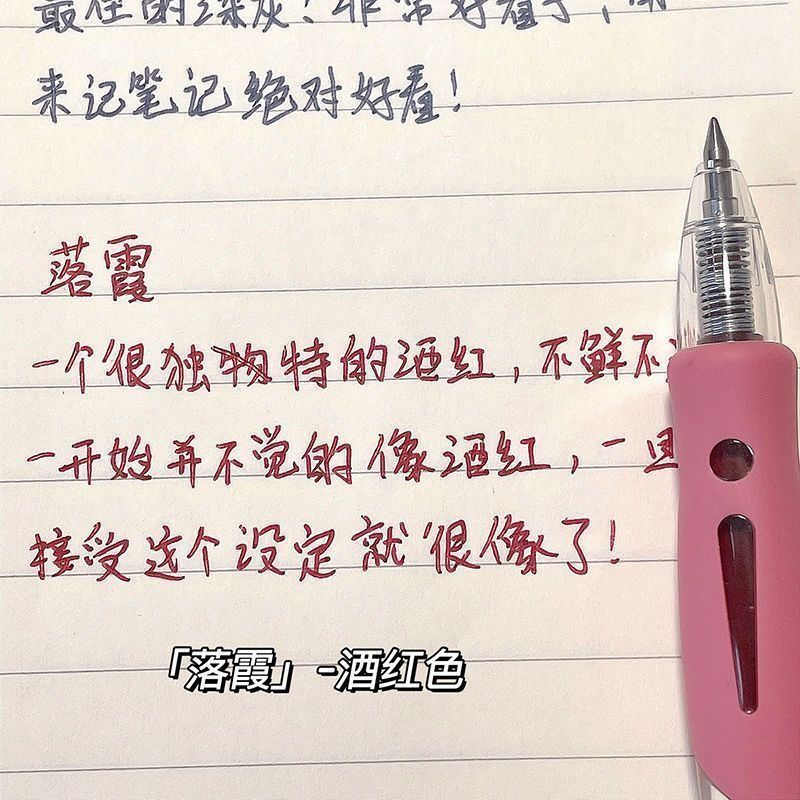 最佳的深灰！非常好看了，用
来记笔记绝对好看！
落霞
一个很独物特的酒红，不鲜不
一开始并不觉的像酒红，一旦
接受这个设定就很像了！
「落霞」-酒红色